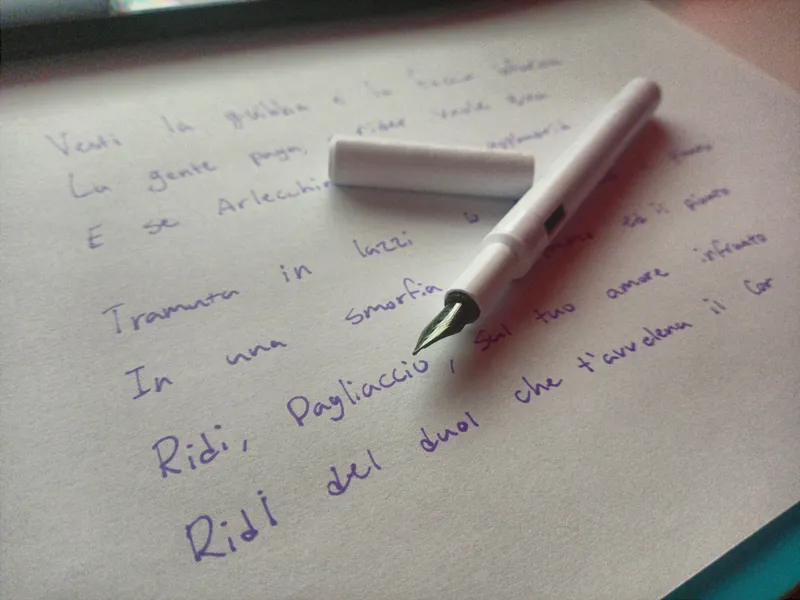 Vesti la guibba e la faccia infarina
La gente paga, rider vuole
E se Arlecchin
Tramuta in lazzi
In una smorfia il pianto
Ridi, Pagliaccio, sul tuo amore infranto
Ridi del duol che t'avvelena il cor